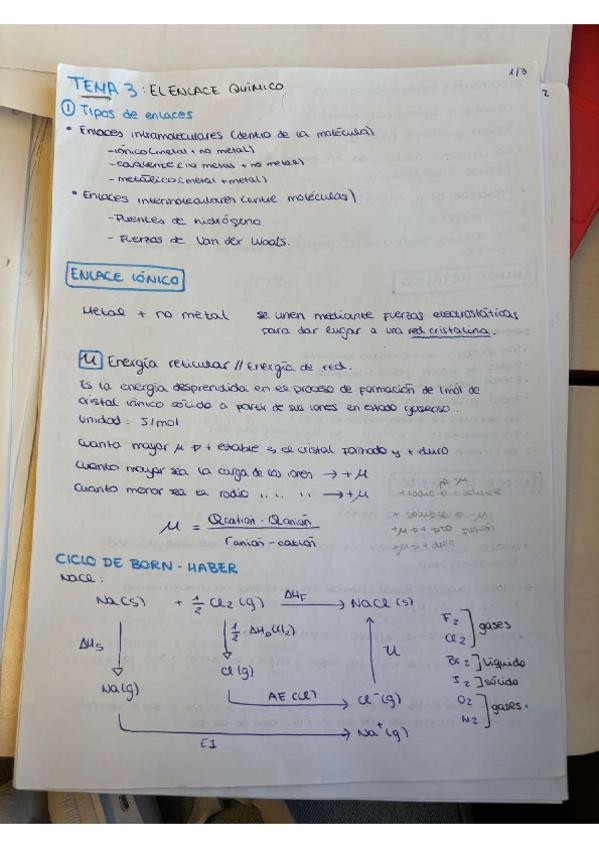 1/3
TEMA 3: EL ENLACE QUÍMICO
2
① Tipos de enlaces
• Enlaces intramoleculares (dentro de la molécula)
- iónico (metal + no metal)
- covalente (no metal + no metal)
- metálico (metal + metal)
• Enlaces intermoleculares (entre moléculas)
- Puentes de hidrógeno
- Fuerzas de Van der Waals.
ENLACE IÓNICO
Metal + no metal se unen mediante fuerzas electrostáticas
para dar lugar a una red cristalina.
μ Energía reticular // Energía de red.
Es la energía desprendida en el proceso de formación de 1mol de
cristal iónico sólido a partir de sus iones en estado gaseoso.
Unidad: J/mol
Cuanta mayor μ → + estable es el cristal formado y + duro
Cuanto mayor sea la carga de los iones → + μ
Cuanto menor sea el radio " " " → + μ
+ radio → + soluble
+ soluble → - μ
+ μ → + pto fusión
+ μ → + duro
μ = Qcatión · Qanión / r anión-catión
CICLO DE BORN-HABER
NaCl:
Na(s) + 1/2 Cl2 (g) ΔHf → NaCl (s)
ΔHs
1/2 · ΔHD(Cl2)
μ
Na(g)
Cl(g) AE (Cl) → Cl⁻(g)
EI → Na⁺(g)
F2
Cl2 ] gases
Br2 ] líquido
I2 ] sólido
O2
N2 ] gases.